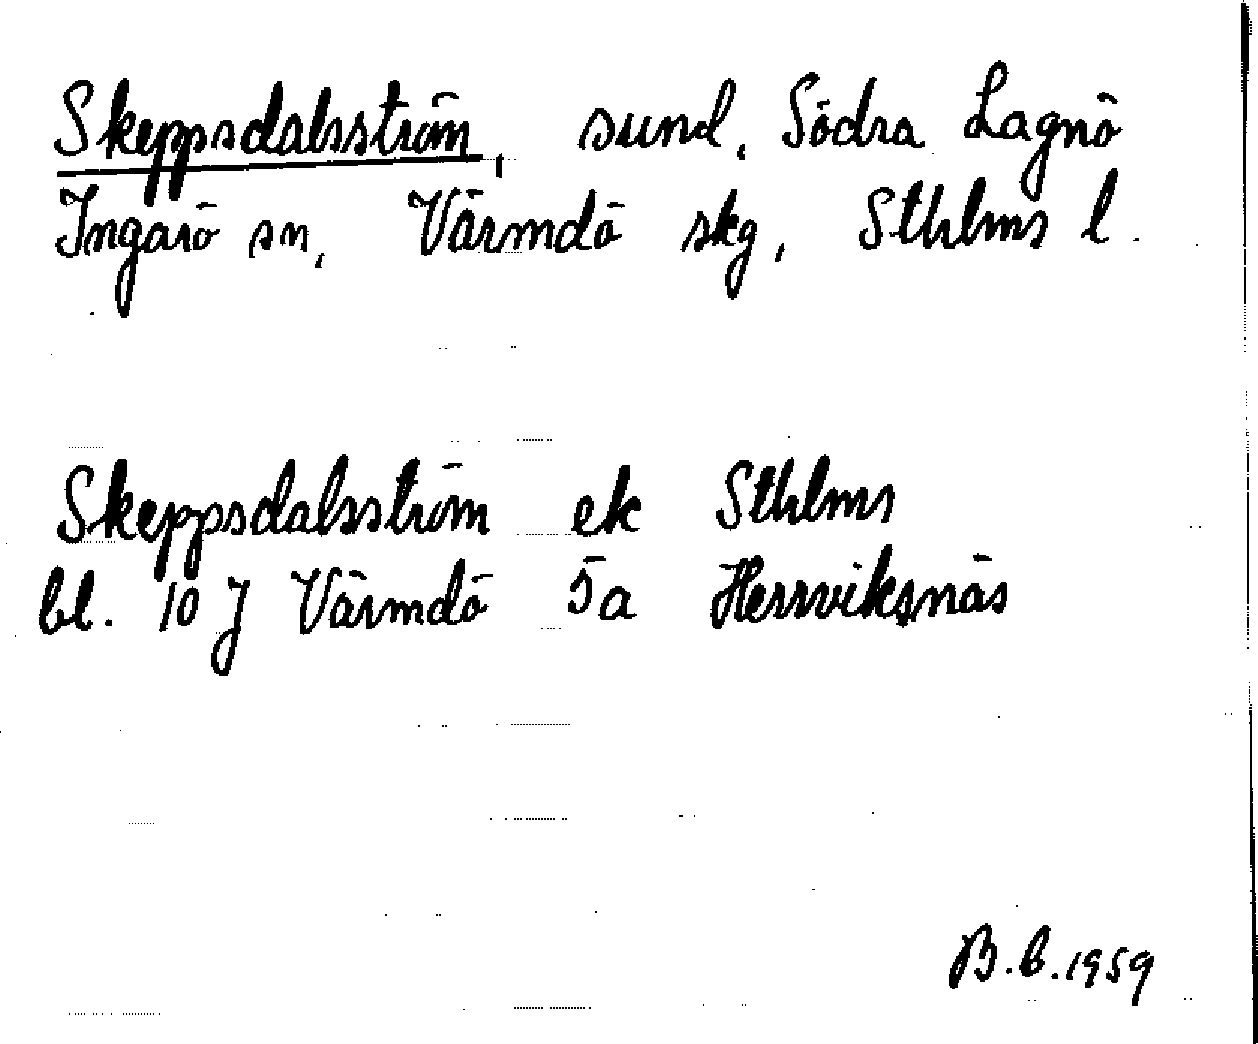 Skeppsdalsström, sund, Södra Lagnö
Ingarö sn, Värmdö skg, Sthlms l.
Skeppsdalsström ek Sthlms
bl. 10 J Värmdö 5a Herrviksnäs
B.b.1959